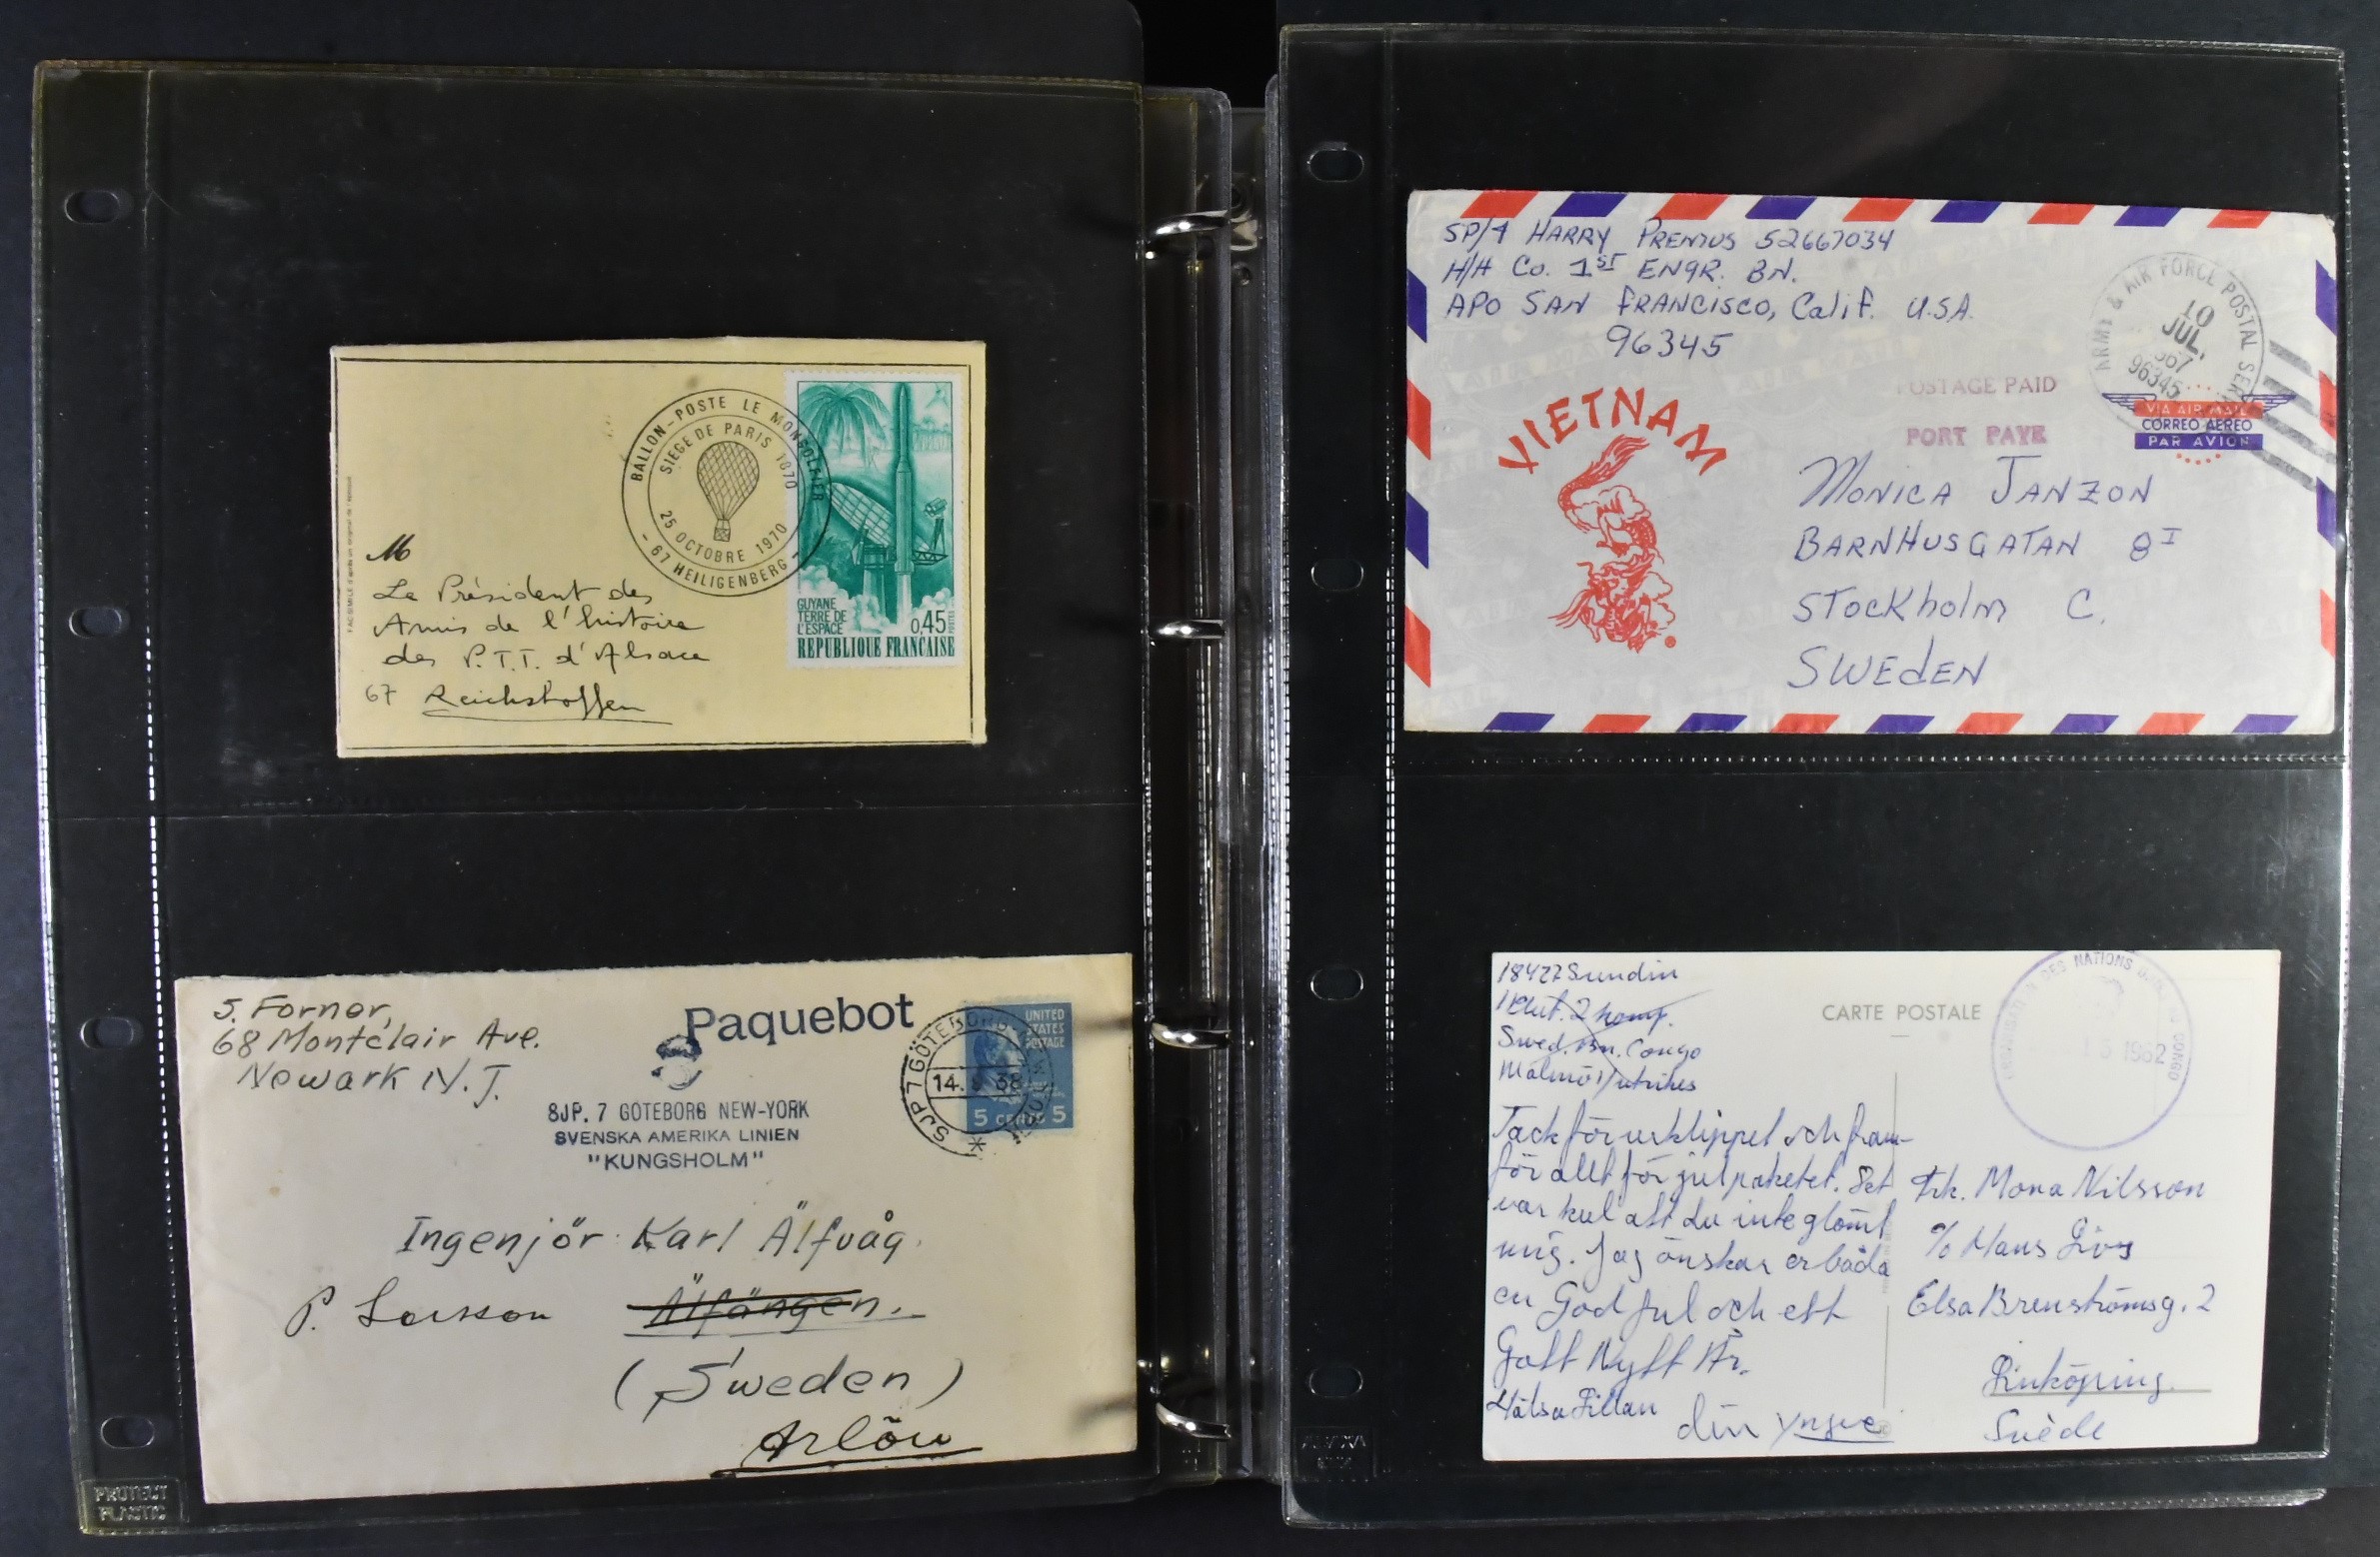 BALLON-POSTE LE MONGOLFIER
SIEGE DE PARIS 1870
25 OCTOBRE 1970
- 67 HEILIGENBERG -
GUYANE
TERRE DE
L'ESPACE
0,45
POSTES
REPUBLIQUE FRANÇAISE
M
Le Président des
Amis de l'histoire
des P.T.T. d'Alsace
67 Reichshoffen
S. Forner,
68 Montclair Ave.
Newark N.J.
Paquebot
8JP. 7 GÖTEBORG NEW-YORK
SVENSKA AMERIKA LINIEN
"KUNGSHOLM"
SJP 7 GÖTEBORG
14. 38
UNITED
STATES
POSTAGE
5 CENTS 5
Ingenjör Karl Älfvåg
P. Larsson Älfängen.
(Sweden)
Arlöv
PROTECT
PLASTIC
SP/4 HARRY PRENIUS 52667034
H/H Co. 1ST ENGR. BN.
APO SAN FRANCISCO, Calif. U.S.A.
96345
ARMY & AIR FORCE POSTAL SER
10
JUL.
967
96345
POSTAGE PAID
PORT PAYE
VIA AIR MAIL
CORREO AEREO
PAR AVION
VIETNAM
MONICA JANZON
BARNHUSGATAN 8 I
STOCKholm C.
SWEDEN
18427 Sundin
2 komp.
Swed. Bn. Congo
Malmö 1/utrikes
CARTE POSTALE
DES NATIONS
CONGO
1962
Tack för urklippet och fram-
för allt för julpaketet. Det
var kul att du inte glömt
mig. Jag önskar er båda
en God Jul och ett
Gott Nytt År.
Hälsa Fillan
din Yngve
Frk. Mona Nilsson
c/o Hans
Elsa Brenströmsg. 2
Linköping
Suède